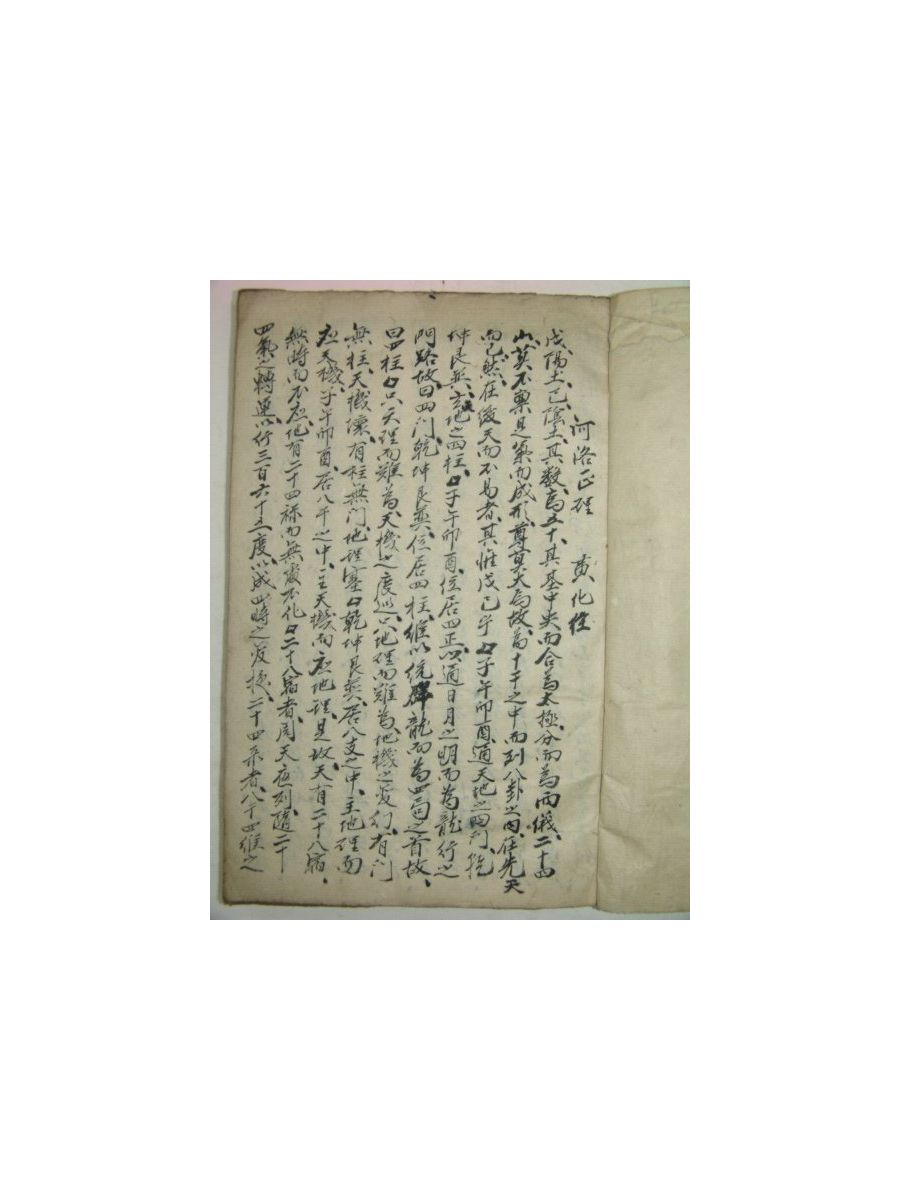 河洛正經 黃化經
戊陽土己陰土其數為五十其基中央而合為太極分而為兩儀二十四
山莫不稟是氣而成形尊莫大焉故為十干之中而列八卦之內在先天
而已然在後天而不易者其惟戊己乎口子午卯酉通天地之四門乾
坤艮巽立地之四柱口子午卯酉位居四正以通日月之明而為龍行之
門路故曰四門乾坤艮巽位居四柱維以統群龍而為四局之首故
曰四柱口只天理而難為天機之度巡只地理而難為地機之變幻有門
無柱天機壞有柱無門地理塞口乾坤艮巽居八支之中主地理而
应天機子午卯酉居八干之中主天機而应地理是故天有二十八宿
無時而不应地有二十四禄而無處不化口二十八宿者周天应列隨二十
四氣之轉運以行三百六十五度以成四時之变授二十四来者八干四維之